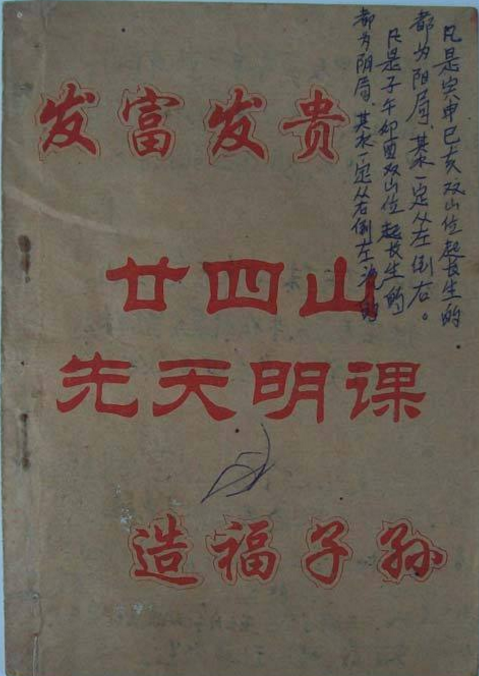 发富发贵
廿四山
先天明课
造福子孙
凡是寅申巳亥双山位起长生的
都为阳局,其水一定从左倒右。
凡是子午卯酉双山位起长生的
都为阴局,其水一定从右倒左的